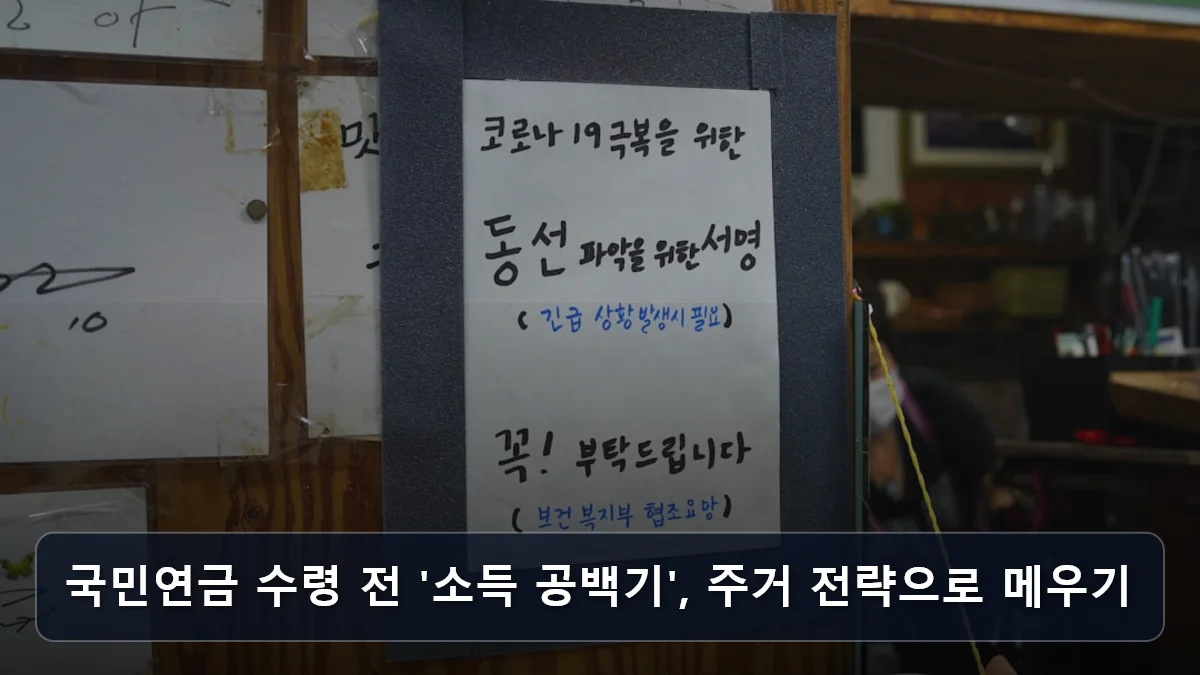 코로나 19 극복을 위한
동선 파악을 위한 서명
( 긴급 상황 발생시 필요)
꼭! 부탁드립니다
( 보건 복지부 협조요망)
맛
10
국민연금 수령 전 '소득 공백기', 주거 전략으로 메우기